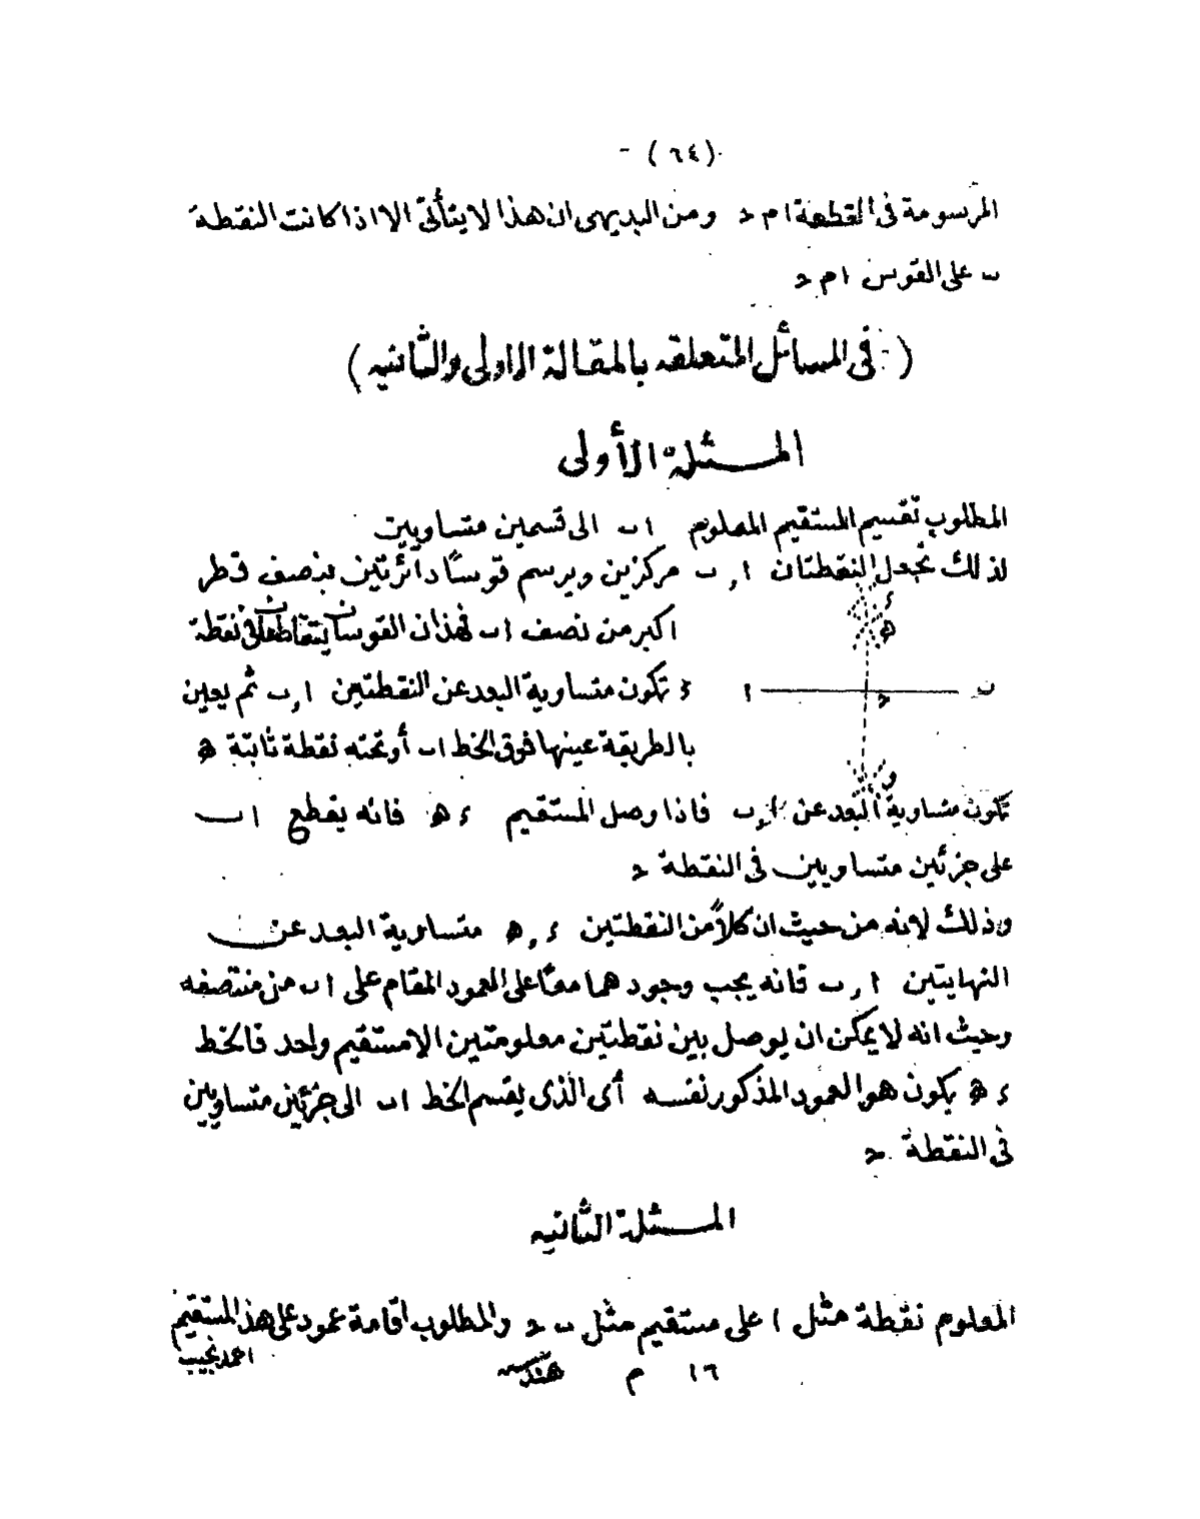 (٦٤)
المرسومة فى القطعة ا م د ومن البديهى ان هذا لا يتأتى الا اذا كانت النقطة
ب على القوس ا م د
( فى المسائل المتعلقه بالمقالة الاولى والثانيه )
المسئلة الأولى
المطلوب تقسيم المستقيم المعلوم ا ب الى قسمين متساويين
لذلك تجعل النقطتان ا , ب مركزين ويرسم قوسًا دآئرتين بنصف قطر
اكبر من نصف ا ب فهذان القوسان يتقاطعان فى نقطة
ء تكون متساوية البعد عن النقطتين ا , ب ثم يعين
بالطريقة عينها فوق الخط ا ب أو تحته نقطة ثانية ه
تكون متساوية البعد عن ا , ب فاذا وصل المستقيم ء ه فانه يقطع ا ب
على جزئين متساويين فى النقطة د
وذلك لانه من حيث ان كلاً من النقطتين ء , ه متساوية البعد عن
النهايتين ا , ب فانه يجب وجودهما معًا على العمود المقام على ا ب من منتصفه
وحيث انه لا يمكن ان يوصل بين نقطتين معلومتين الا مستقيم واحد فالخط
ء ه يكون هو العمود المذكور نفسه أى الذى يقسم الخط ا ب الى جزئين متساويين
فى النقطة د
المسئلة الثانيه
المعلوم نقطة مثل ا على مستقيم مثل ب د والمطلوب اقامة عمود على هذ المستقيم
احمد نجيب
١٦ م هندسه
ء
ه
ا
د
ب
و